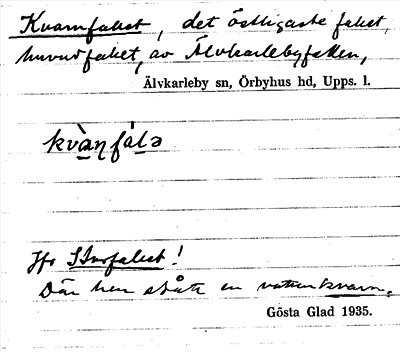 Kvarnfallet, det östligaste fallet,
huvudfallet, av Älvkarlebyfallen,
Älvkarleby sn, Örbyhus hd, Upps. l.
kvànfálə
Jfr Storfallet!
Där hem stått en vattenkvarn.
Gösta Glad 1935.